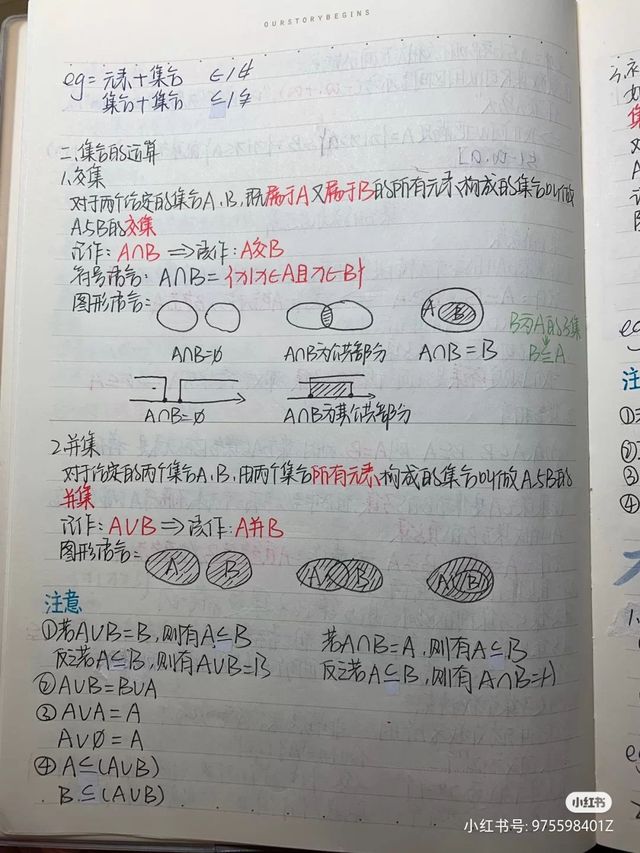 OURSTORYBEGINS
eg= 元素+集合 ∈/∉
集合+集合 ⊆/⊈
二.集合的运算
1.交集
对于两个给定的集合A、B,既属于A又属于B的所有元素构成的集合叫做
A与B的交集
记作:A∩B⇒读作:A交B
符号语言:A∩B={x|x∈A且x∈B}
图形语言:
A B
A∩B=∅ A∩B为公共部分 A∩B=B
B为A的子集
B⊆A
A∩B=∅ A∩B为其公共部分
2.并集
对于给定的两个集合A、B,由两个集合所有元素构成的集合叫做A与B的
并集
记作:A∪B⇒读作:A并B
图形语言=
A B A B A B
注意
①若A∪B=B,则有A⊆B 若A∩B=A,则有A⊆B
反之若A⊆B,则有A∪B=B 反之若A⊆B,则有A∩B=A
②A∪B=B∪A
③A∪A=A
A∪∅=A
④A⊆(A∪B)
B⊆(A∪B)
eg
注
①
②
③
④
小红书
小红书号: 975598401Z